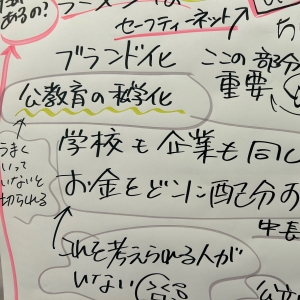 あるの？
セーフティーネット
ブランド化
ここの部分
重要
公教育の私学化
うまく
いって
いないと
切られる
学校も企業も同じ
お金をどこに配分の
中長
これを考えられる人が
いない